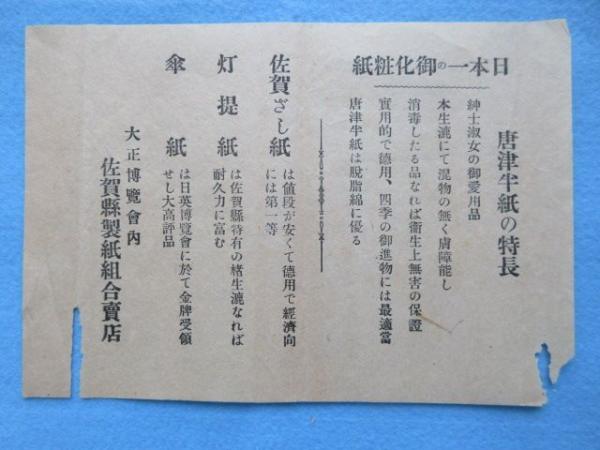 日本一の御化粧紙
唐津半紙の特長
紳士淑女の御愛用品
本生漉にて混物の無く膚障能し
消毒したる品なれば衛生上無害の保證
實用的で德用、四季の御進物には最適當
唐津半紙は脫脂綿に優る
佐賀ざし紙
は値段が安くて德用で經濟向
には第一等
灯提紙
は佐賀縣特有の楮生漉なれば
耐久力に富む
傘紙
は日英博覽會に於て金牌受領
せし大高評品
大正博覽會內
佐賀縣製紙組合賣店